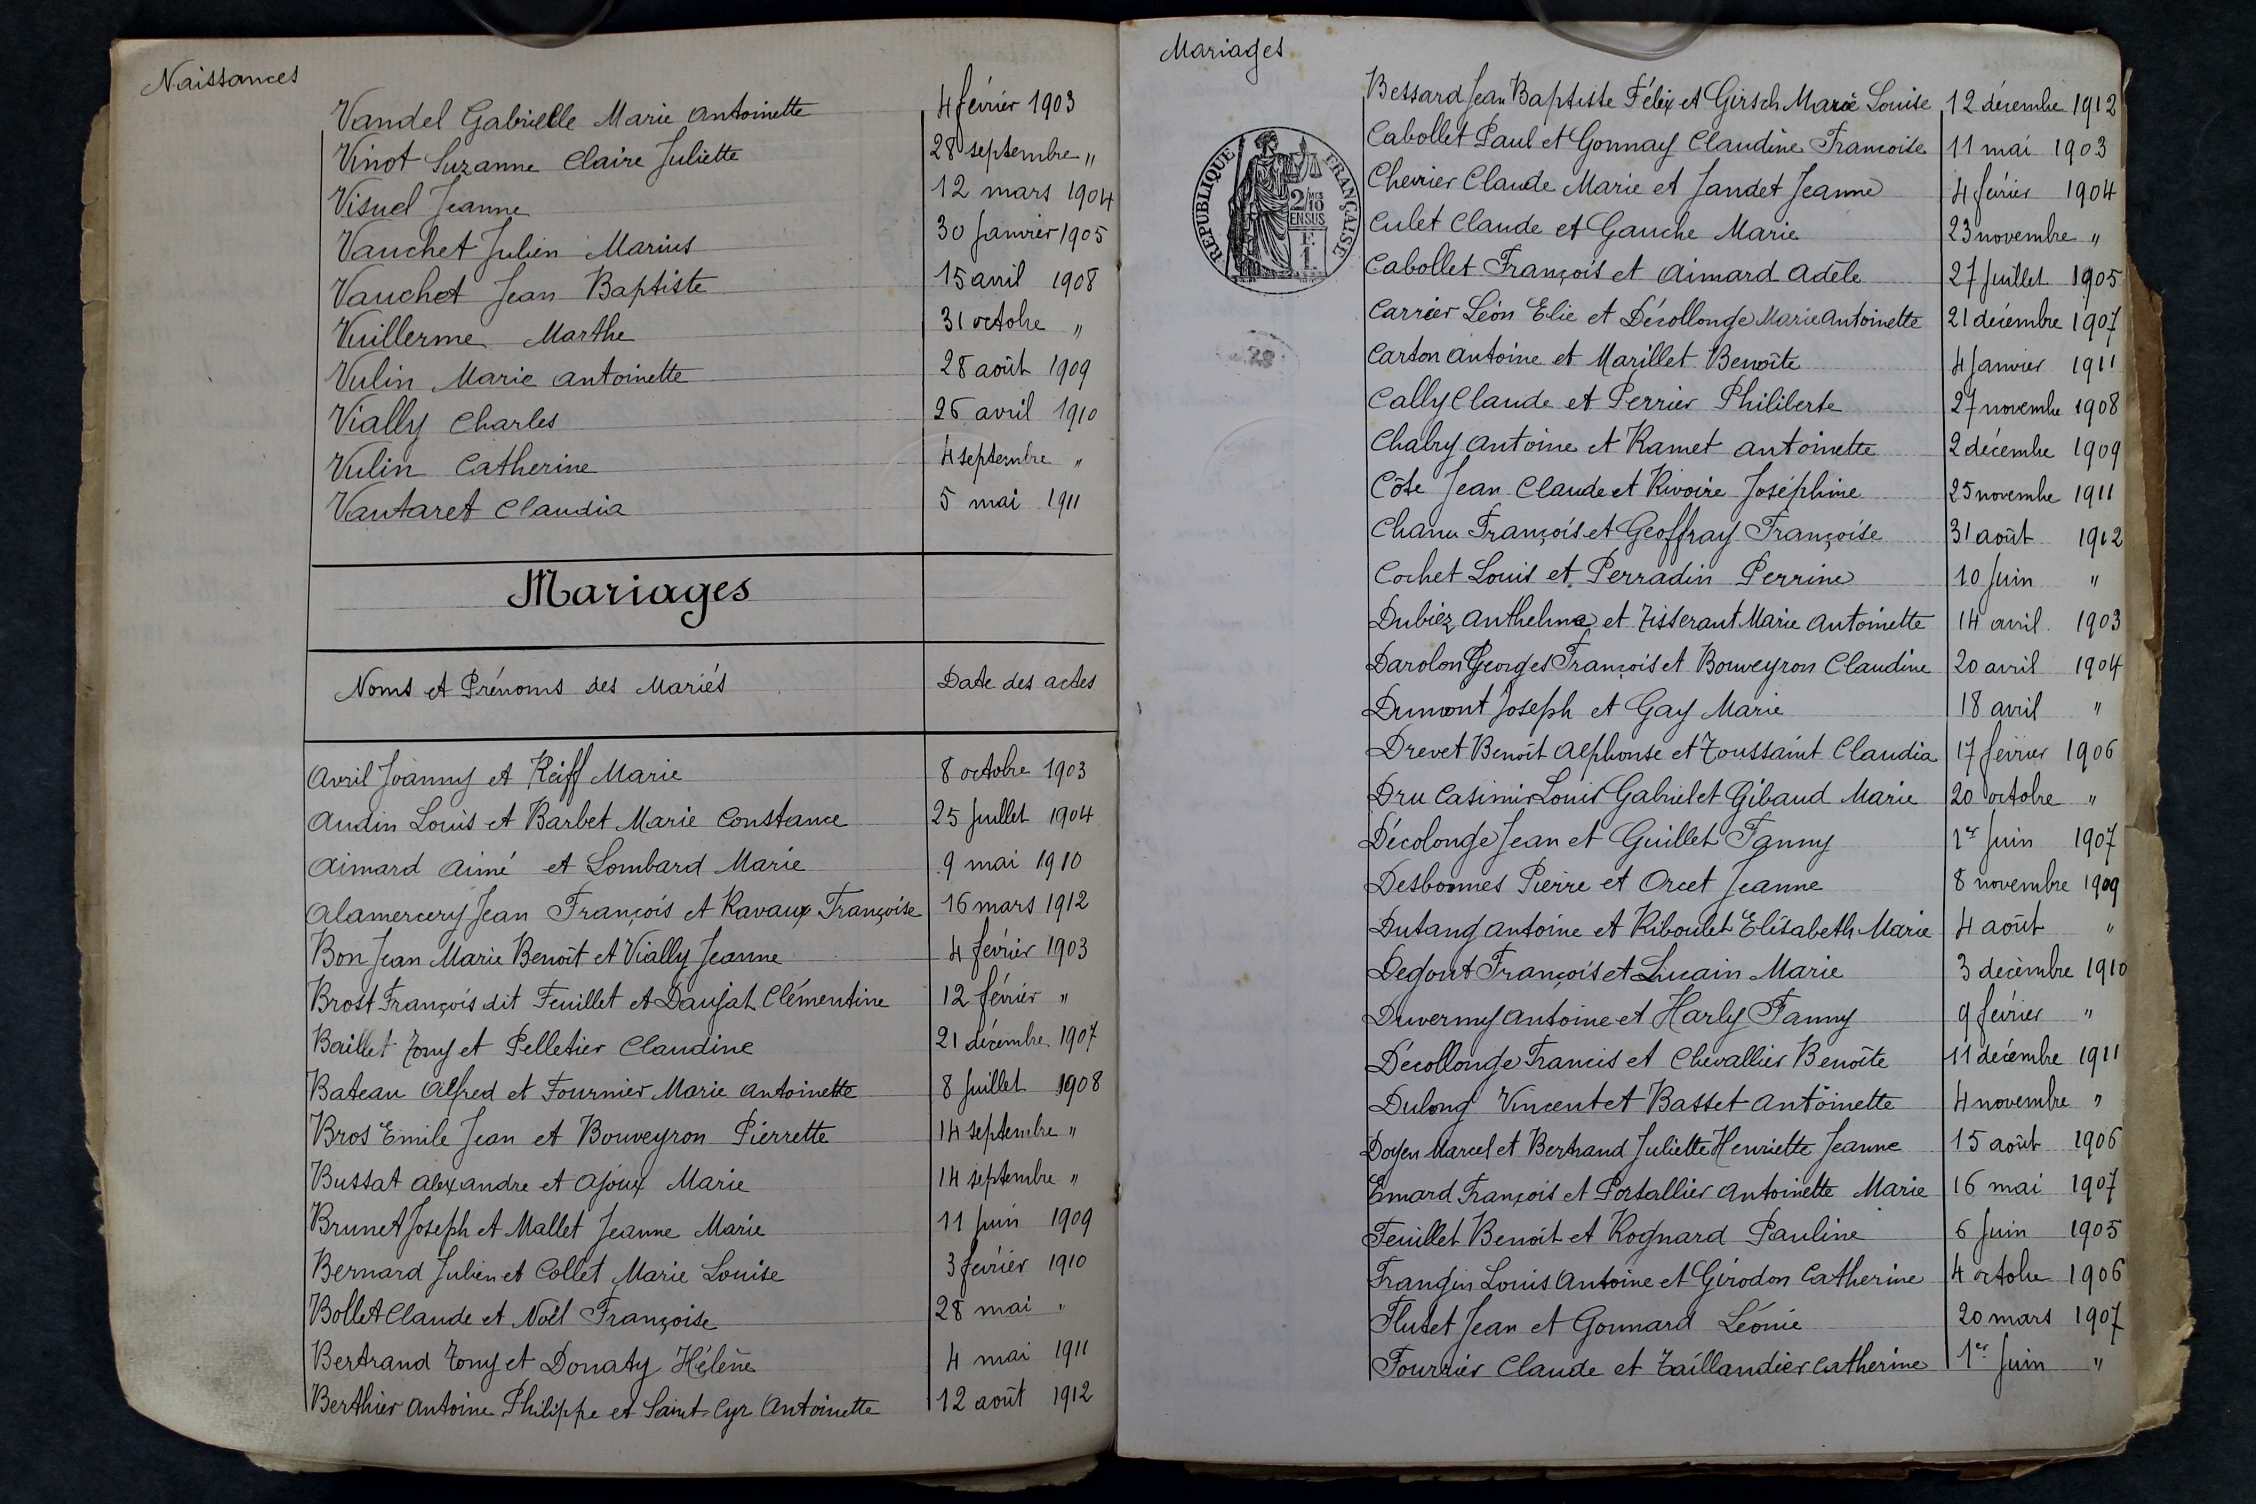 Naissances
Vandel Gabrielle Marie Antoinette 4 février 1903
Vinot Suzanne Claire Juliette 28 septembre "
Visuel Jeanne 12 mars 1904
Vauchet Julien Marius 30 Janvier 1905
Vauchot Jean Baptiste 15 avril 1908
Vuillerme Marthe 31 octobre "
Vulin Marie Antoinette 28 août 1909
Vially Charles 26 avril 1910
Vulin Catherine 4 septembre "
Vautaret Claudia 5 mai 1911
Mariages
Noms et Prénoms des Mariés Date des actes
Avril Joanny et Reiff Marie 8 octobre 1903
Audin Louis et Barbet Marie Constance 25 Juillet 1904
Aimard Aimé et Lombard Marie 9 mai 1910
Alamercery Jean François et Ravaux Françoise 16 mars 1912
Bon Jean Marie Benoît et Vially Jeanne 4 février 1903
Brost François dit Feuillet et Daujat Clémentine 12 février "
Baillet Tony et Pelletier Claudine 21 décembre 1907
Bateau Alfred et Fournier Marie Antoinette 8 Juillet 1908
Bros Emile Jean et Bouveyron Pierrette 14 septembre "
Bussat Alexandre et Ajoux Marie 14 septembre "
Brunet Joseph et Mallet Jeanne Marie 11 Juin 1909
Bernard Julien et Collet Marie Louise 3 février 1910
Bollet Claude et Noël Françoise 28 mai "
Bertrand Tony et Donaty Hélène 4 mai 1911
Berthier Antoine Philippe et Saint-Cyr Antoinette 12 août 1912
Mariages
RÉPUBLIQUE FRANÇAISE
2/10 MES
EN SUS
F.
1.
Bessard Jean Baptiste Félix et Girsch Marie Louise 12 décembre 1912
Cabollet Paul et Gonnay Claudine Francoise 11 mai 1903
Chevrier Claude Marie et Jandet Jeanne 4 février 1904
Culet Claude et Gauche Marie 23 novembre "
Cabollet François et Aimard Adèle 27 Juillet 1905
Carrier Léon Elie et Décollonge Marie Antoinette 21 décembre 1907
Carton Antoine et Marillet Benoîte 4 Janvier 1911
Cally Claude et Perrier Philiberte 27 novembre 1908
Chabry Antoine et Ramet Antoinette 2 décembre 1909
Côte Jean Claude et Rivoire Joséphine 25 novembre 1911
Chanu François et Geoffray Françoise 31 août 1912
Cochet Louis et Perradin Perrine 10 Juin "
Dubiez Anthelme et Tisserant Marie Antoinette 14 avril 1903
Darolon Georges François et Bouveyron Claudine 20 avril 1904
Dumont Joseph et Gay Marie 18 avril "
Drevet Benoît Alphonse et Toussaint Claudia 17 février 1906
Dru Casimir Louis Gabriel et Gibaud Marie 20 octobre "
Décolonge Jean et Guillet Fanny 1er Juin 1907
Desbonnes Pierre et Orcet Jeanne 8 novembre 1909
Dutang Antoine et Riboulet Elisabeth Marie 4 août "
Degout François et Lucain Marie 3 décembre 1910
Duvernay Antoine et Harly Fanny 9 février "
Décollonge Francis et Chevallier Benoîte 11 décembre 1911
Dulong Vincent et Basset Antoinette 4 novembre "
Doyen Marcel et Bertrand Juliette Henriette Jeanne 15 août 1906
Emard François et Portallier Antoinette Marie 16 mai 1907
Feuillet Benoît et Rognard Pauline 6 Juin 1905
Frangin Louis Antoine et Girodon Catherine 4 octobre 1906
Flutet Jean et Gonnard Léonie 20 mars 1907
Fourrier Claude et Taillandier Catherine 1er Juin "